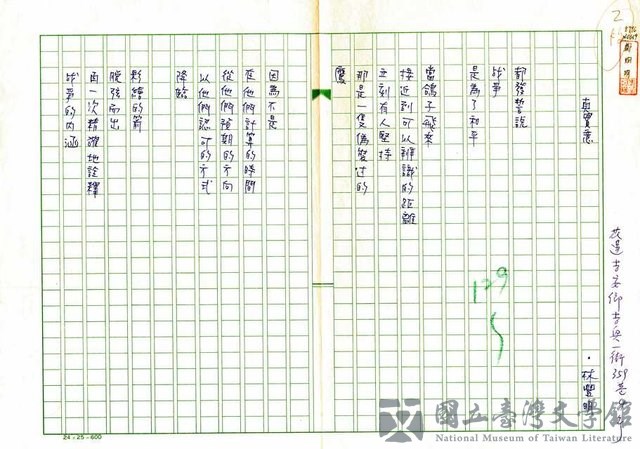 真實意
・林豐明
都發誓說
战爭
是為了和平
當鴿子飛來
接近到可以辨識的距離
立刻有人堅持
那是一隻偽裝过的
鷹
因為不是
在他們計算的時間
從他們預期的方向
以他們認可的方式
降臨
粉繪的箭
脫弦而出
再一次精確地詮釋
战爭的内涵
花蓮吉安鄉吉興一街359巷
129
24×25=600
國立臺灣文學館
National Museum of Taiwan Literature